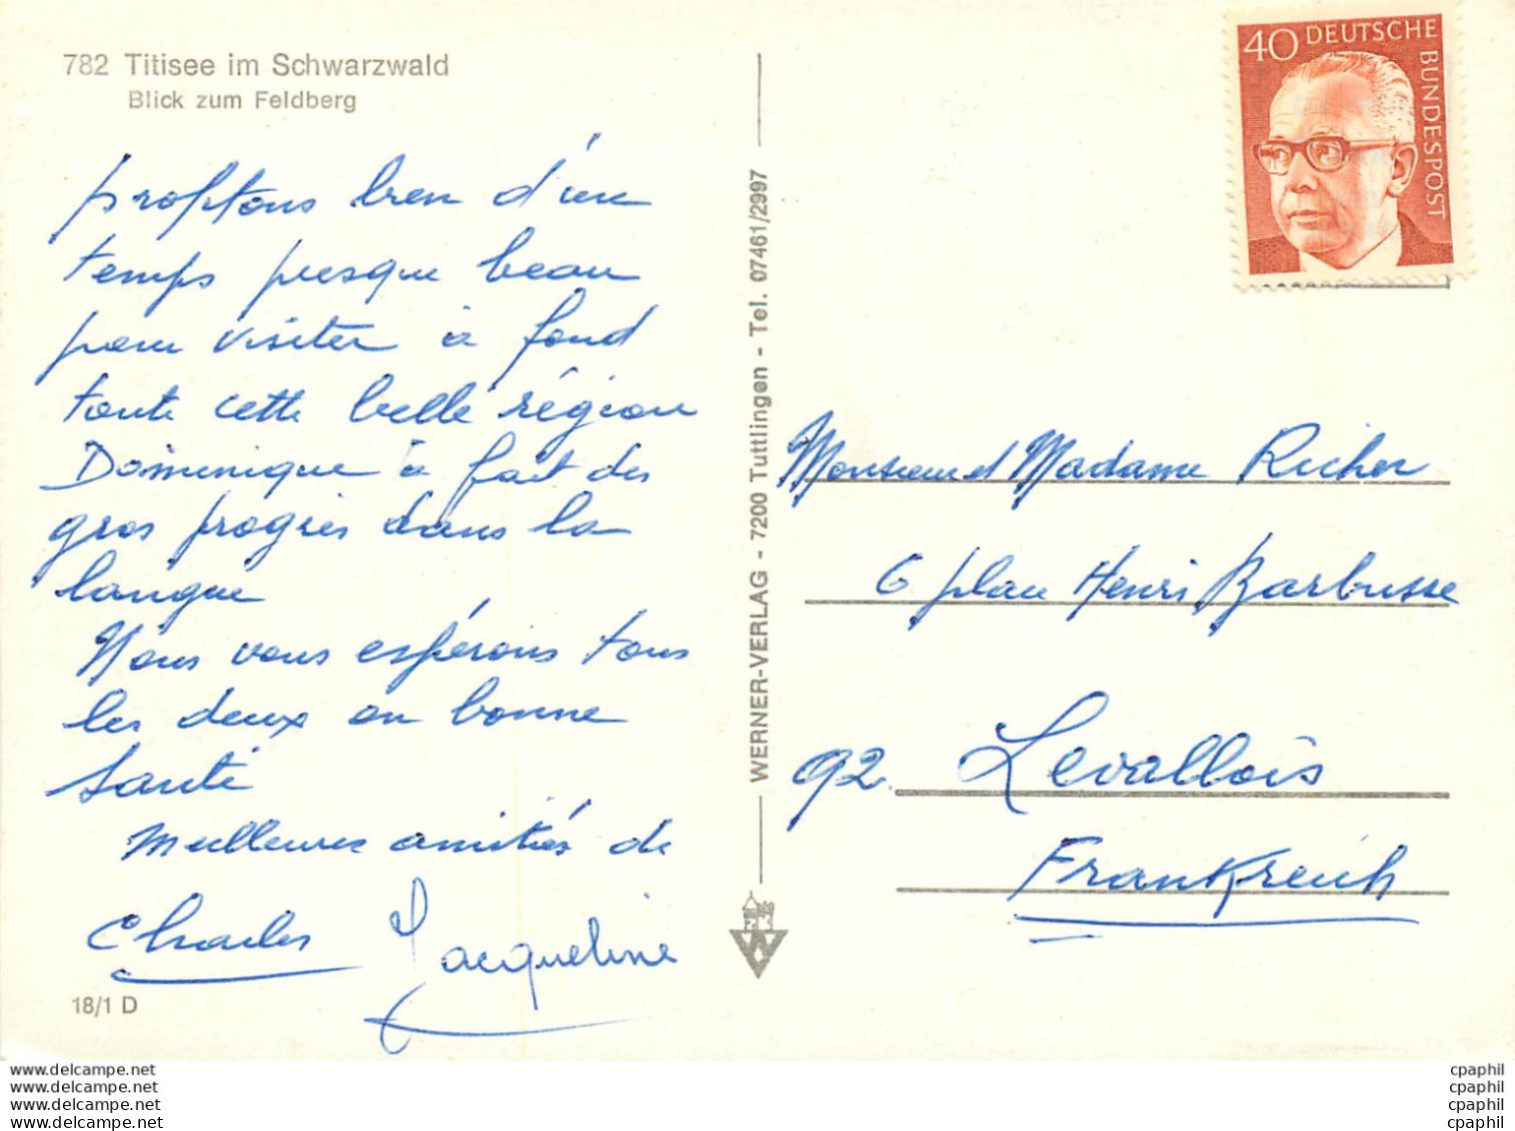 782 Titisee im Schwarzwald
Blick zum Feldberg
profitons bien d'un
temps presque beau
pour visiter à fond
toute cette belle région
Dominique a fait des
gros progrès dans la
langue
Nous vous espérons tous
les deux en bonne
santé
Meilleures amitiés de
Charles Jacqueline
18/1 D
WERNER-VERLAG - 7200 Tuttlingen - Tel. 07461/2997
40 DEUTSCHE
BUNDESPOST
Monsieur et Madame Richer
6 place Henri Barbusse
92. Levallois
Frankreich
www.delcampe.net
www.delcampe.net
www.delcampe.net
www.delcampe.net
cpaphil
cpaphil
cpaphil
cpaphil